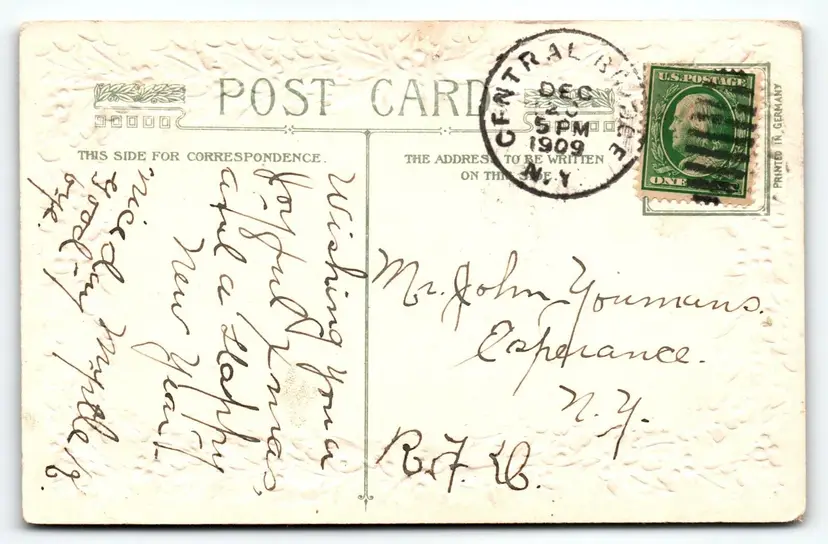 POST CARD
THIS SIDE FOR CORRESPONDENCE.
THE ADDRESS TO BE WRITTEN
ON THIS SIDE
CENTRAL BRIDGE
DEC
5 PM
1909
N.Y.
U.S. POSTAGE
ONE
PRINTED IN GERMANY
Wishing You a
Joyful Xmas,
and a Happy
New Year.
Good-by
bye.
Mr. John Youmans.
Esperance.
N.Y.
R.F.D.